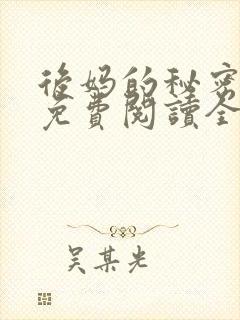 後妈的秘密
免費閱讀全
吴某光